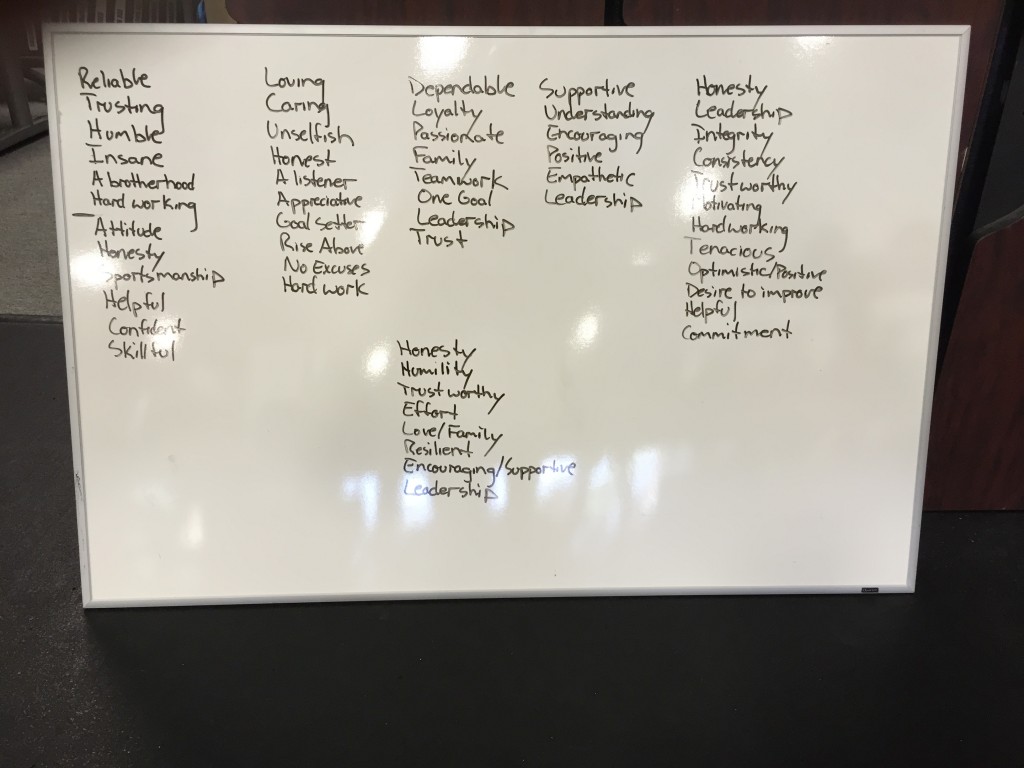 Reliable
Trusting
Humble
Insane
A brotherhood
Hard working
Attitude
Honesty
Sportsmanship
Helpful
Confident
Skillful
Loving
Caring
Unselfish
Honest
A listener
Appreciative
Goal Setter
Rise Above
No Excuses
Hard work
Dependable
Loyalty
Passionate
Family
Teamwork
One Goal
Leadership
Trust
Supportive
Understanding
Encouraging
Positive
Empathetic
Leadership
Honesty
Leadership
Integrity
Consistency
Trustworthy
Motivating
Hardworking
Tenacious
Optimistic/Positive
Desire to improve
Helpful
Commitment
Honesty
Humility
Trustworthy
Effort
Love/Family
Resilient
Encouraging/Supportive
Leadership